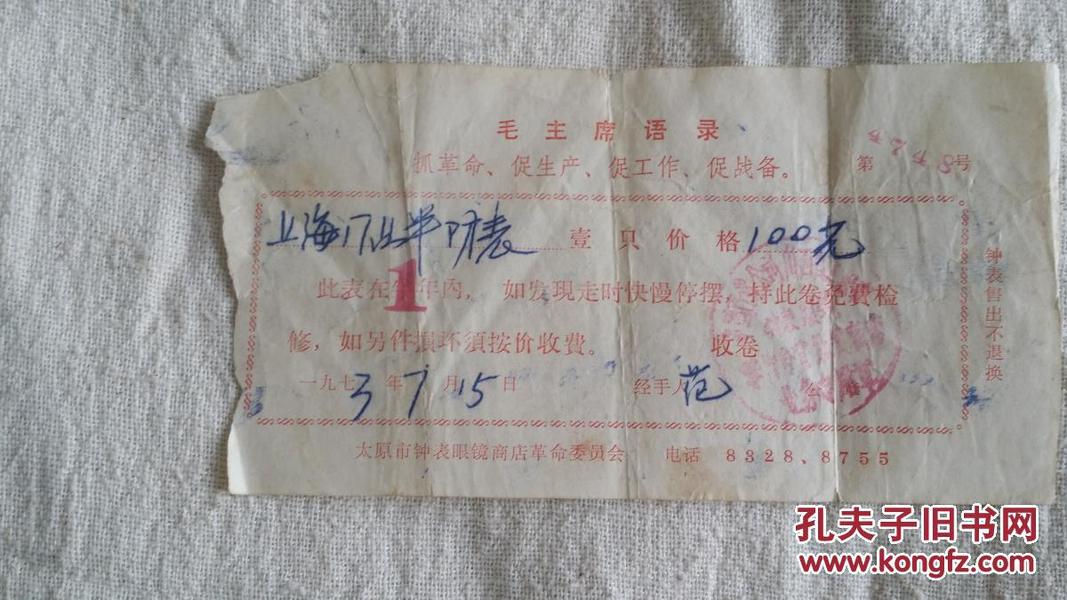 毛主席语录
抓革命、促生产、促工作、促战备。 第4748号
上海17 半防表 壹只价格 100元
此表在1年内,如发现走时快慢停摆,持此卷免費检
修,如另件損坏須按价收費。 收卷
一九七3年7月15日 经手人 范
太原市钟表眼镜商店革命委员会 电话 8328、8755
钟表售出不退换
孔夫子旧书网
www.kongfz.com